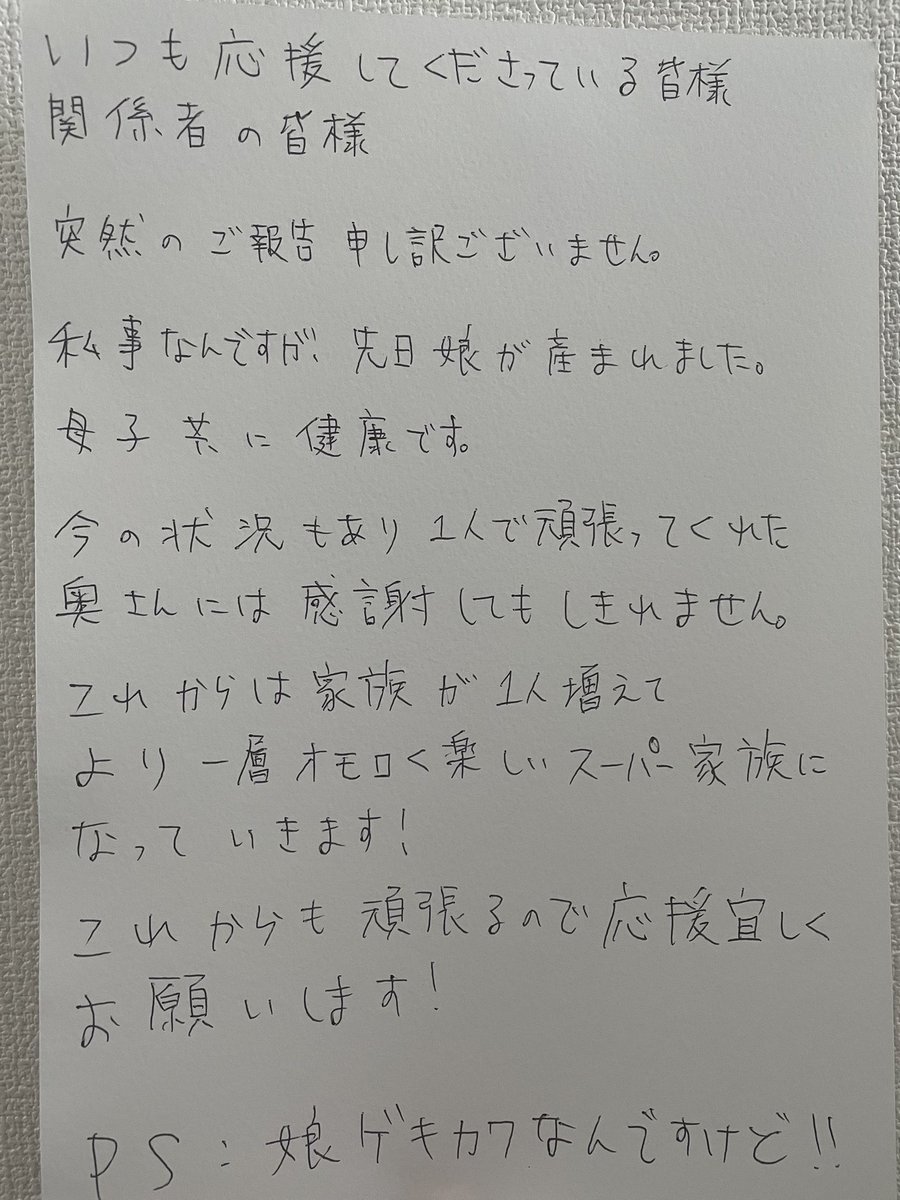 いつも応援してくださっている皆様
関係者の皆様
突然のご報告申し訳ございません。
私事なんですが、先日娘が産まれました。
母子共に健康です。
今の状況もあり1人で頑張ってくれた
奥さんには感謝してもしきれません。
これからは家族が1人増えて
より一層オモロく楽しいスーパー家族に
なっていきます!
これからも頑張るので応援宜しく
お願いします!
PS:娘ゲキカワなんですけど!!